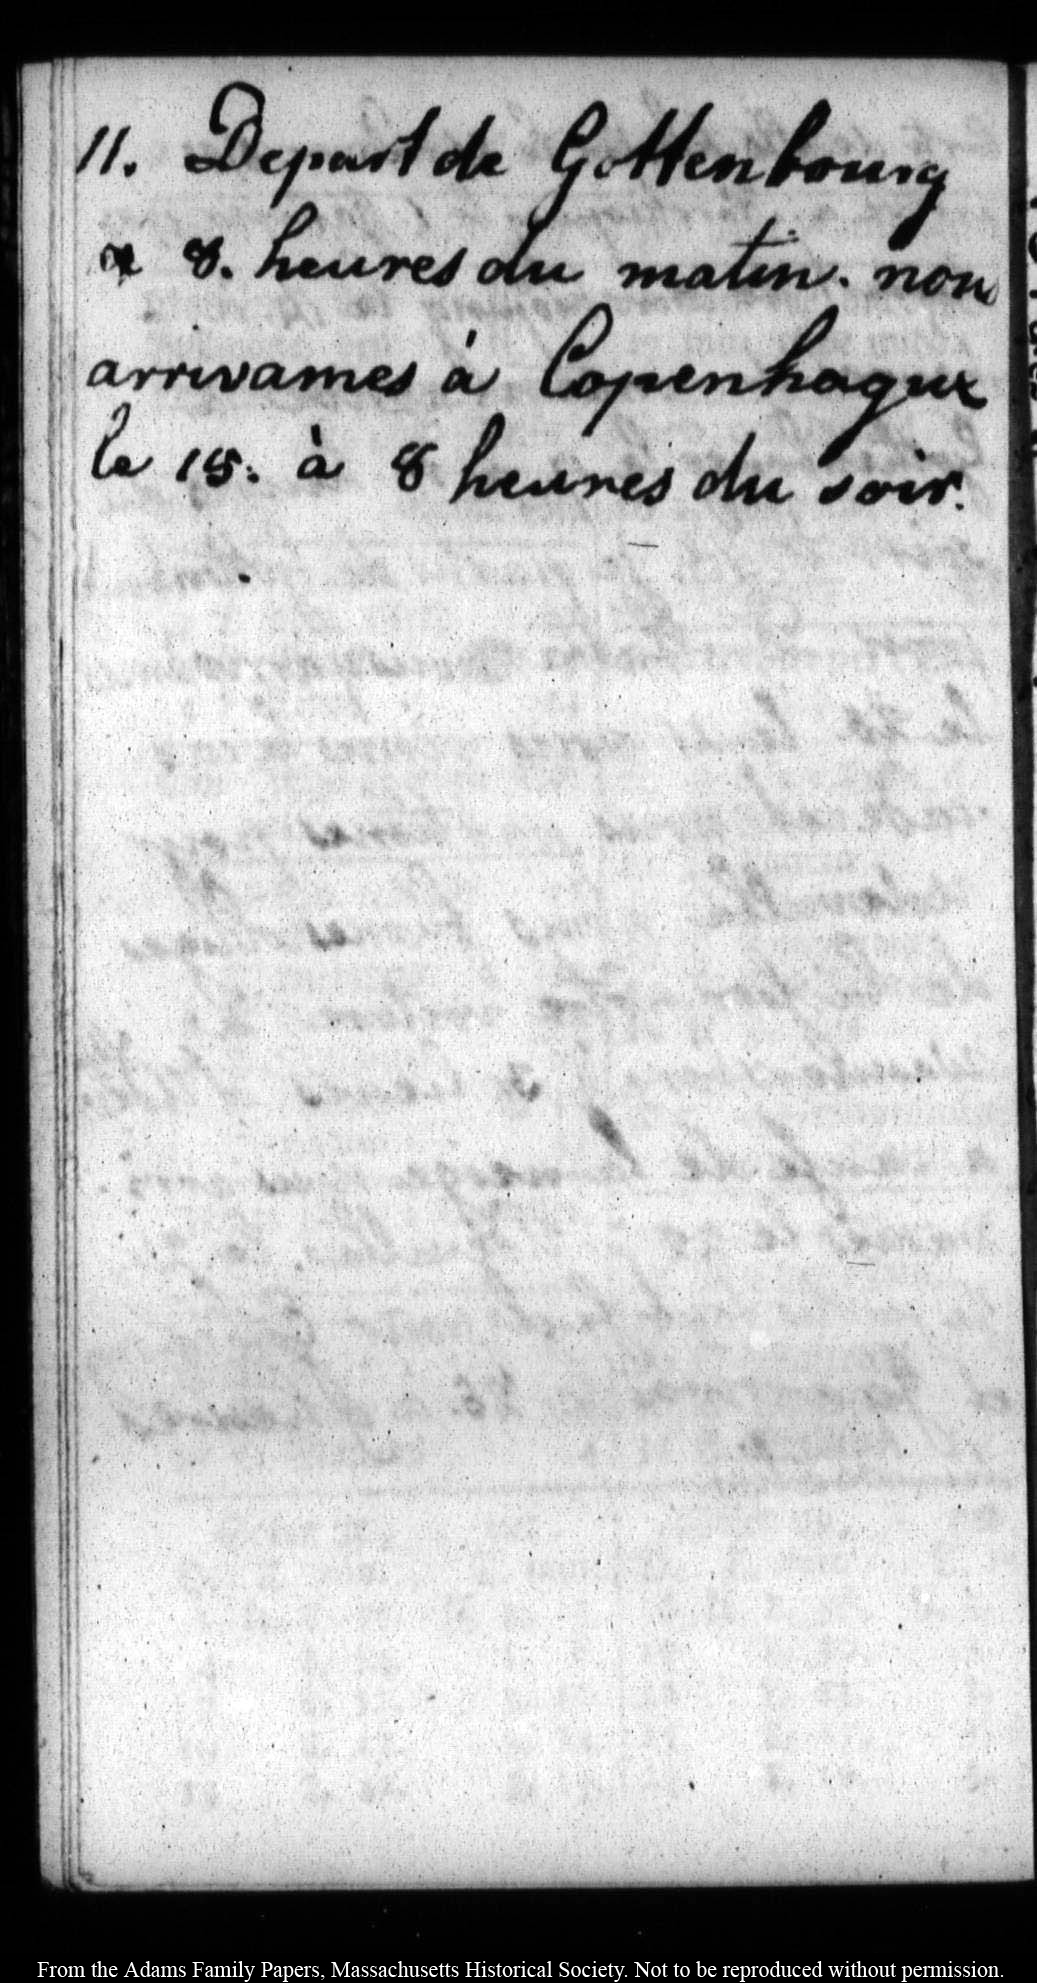 11. Depart de Gottenbourg
a 8. heures du matin. nous
arrivames à Copenhague
le 15. à 8 heures du soir.
From the Adams Family Papers, Massachusetts Historical Society. Not to be reproduced without permission.